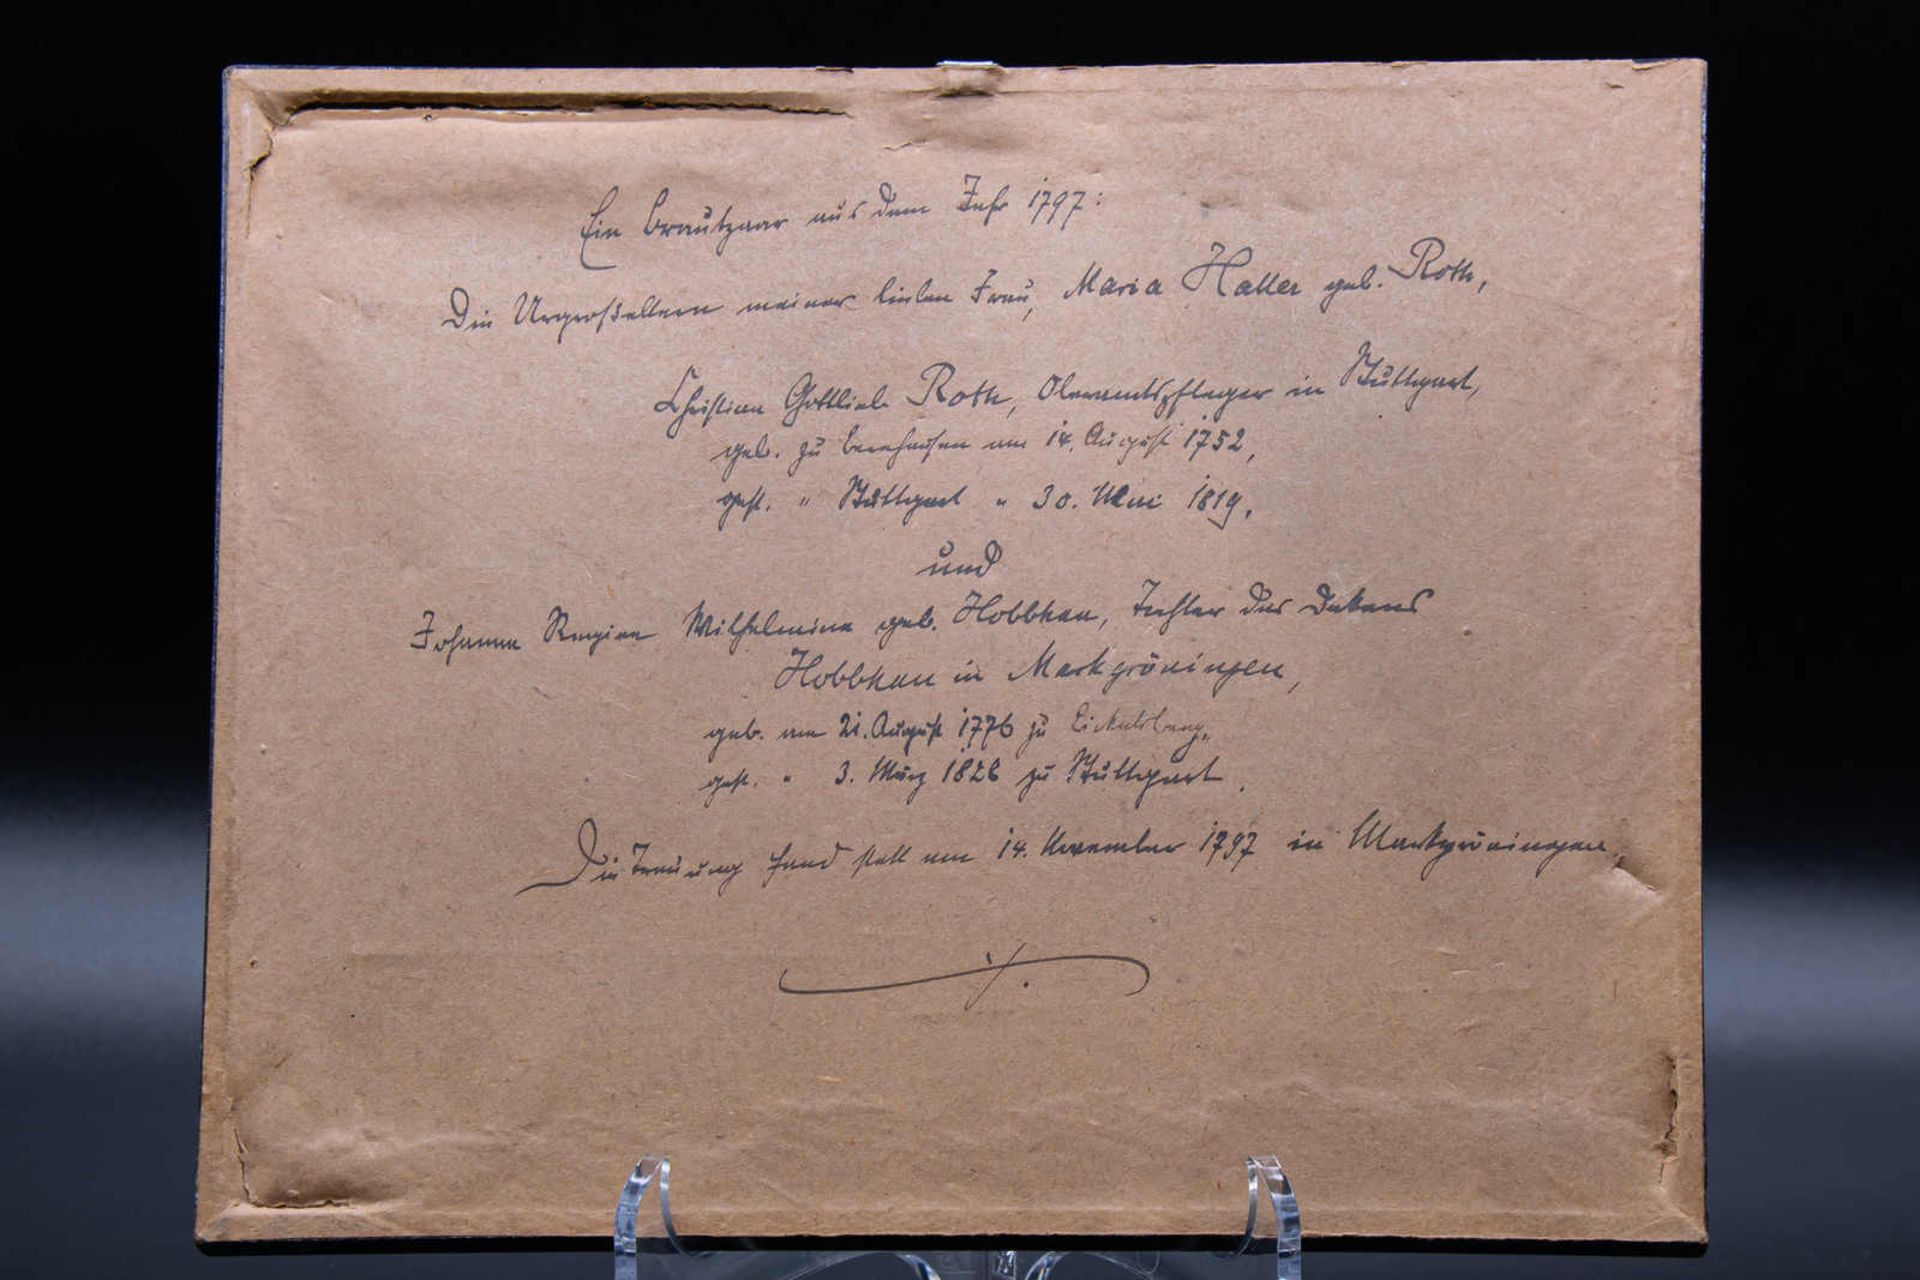 Ein Brautpaar aus dem Jahr 1797:
Die Urgroßeltern meiner lieben Frau, Maria Haller geb. Roth,
Christian Gottlieb Roth, Oberamtspfleger in Stuttgart,
geb. zu Bernhausen am 14. August 1752,
gest. " Stuttgart " 30. Mai 1819.
und
Johanna Regina Wilhelmina geb. Hobbhan, Tochter des Dekans
Hobbhan in Markgröningen,
geb. am 21. August 1776 zu
gest. " 3. März 1828 zu Stuttgart.
Die Trauung fand statt am 14. November 1797 in Markgröningen.